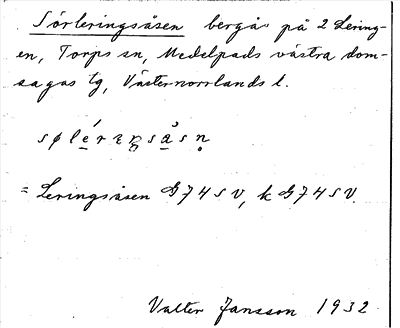 Sörleringsåsen bergås på 2 Lering-
en, Torps sn, Medelpads västra dom-
sagas tg, Västernorrlands l.
= Leringsåsen G74SV, k G74SV.
Valter Jansson 1932